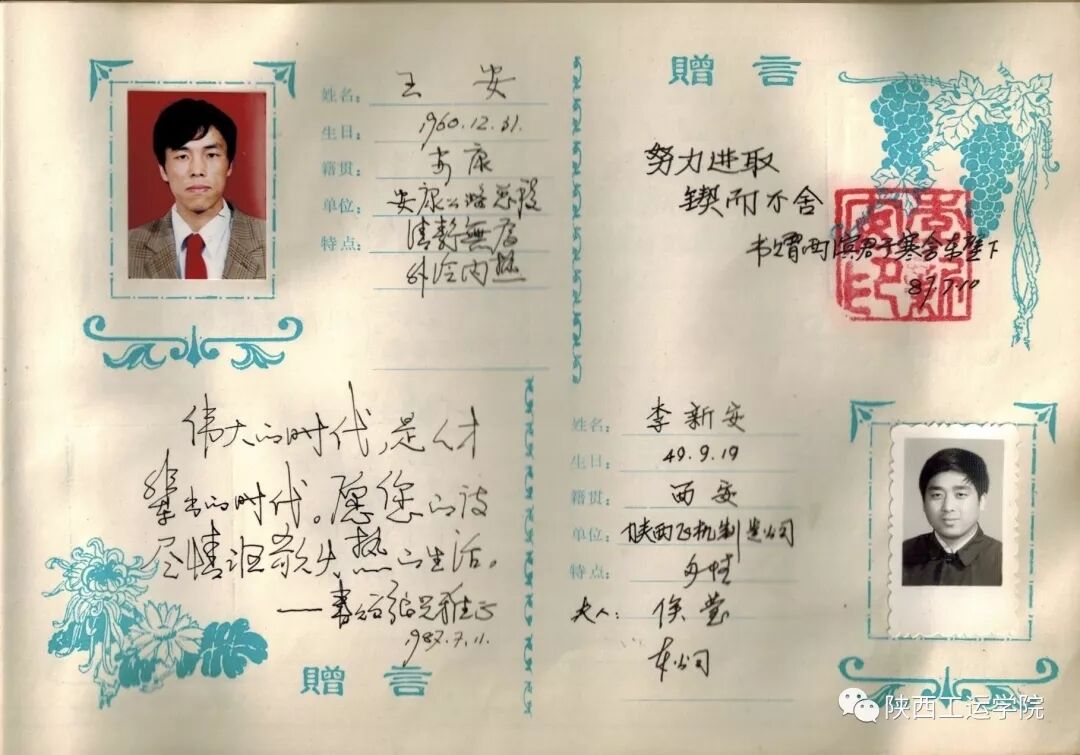 姓名：王安
生日：1960.12.31.
籍贯：安康
单位：安康公路总段
特点：清静無为
外冷内热
赠言
努力进取
锲而不舍
书赠西滨君于寒舍东壁下
87.7.10
伟大的时代，是人才
辈出的时代。愿您的诗
尽情讴歌火热的生活。
1987.7.11.
赠言
姓名：李新安
生日：49.9.19
籍贯：西安
单位：陕西飞机制造公司
特点：
夫人：侯莹
本公司
陕西工运学院